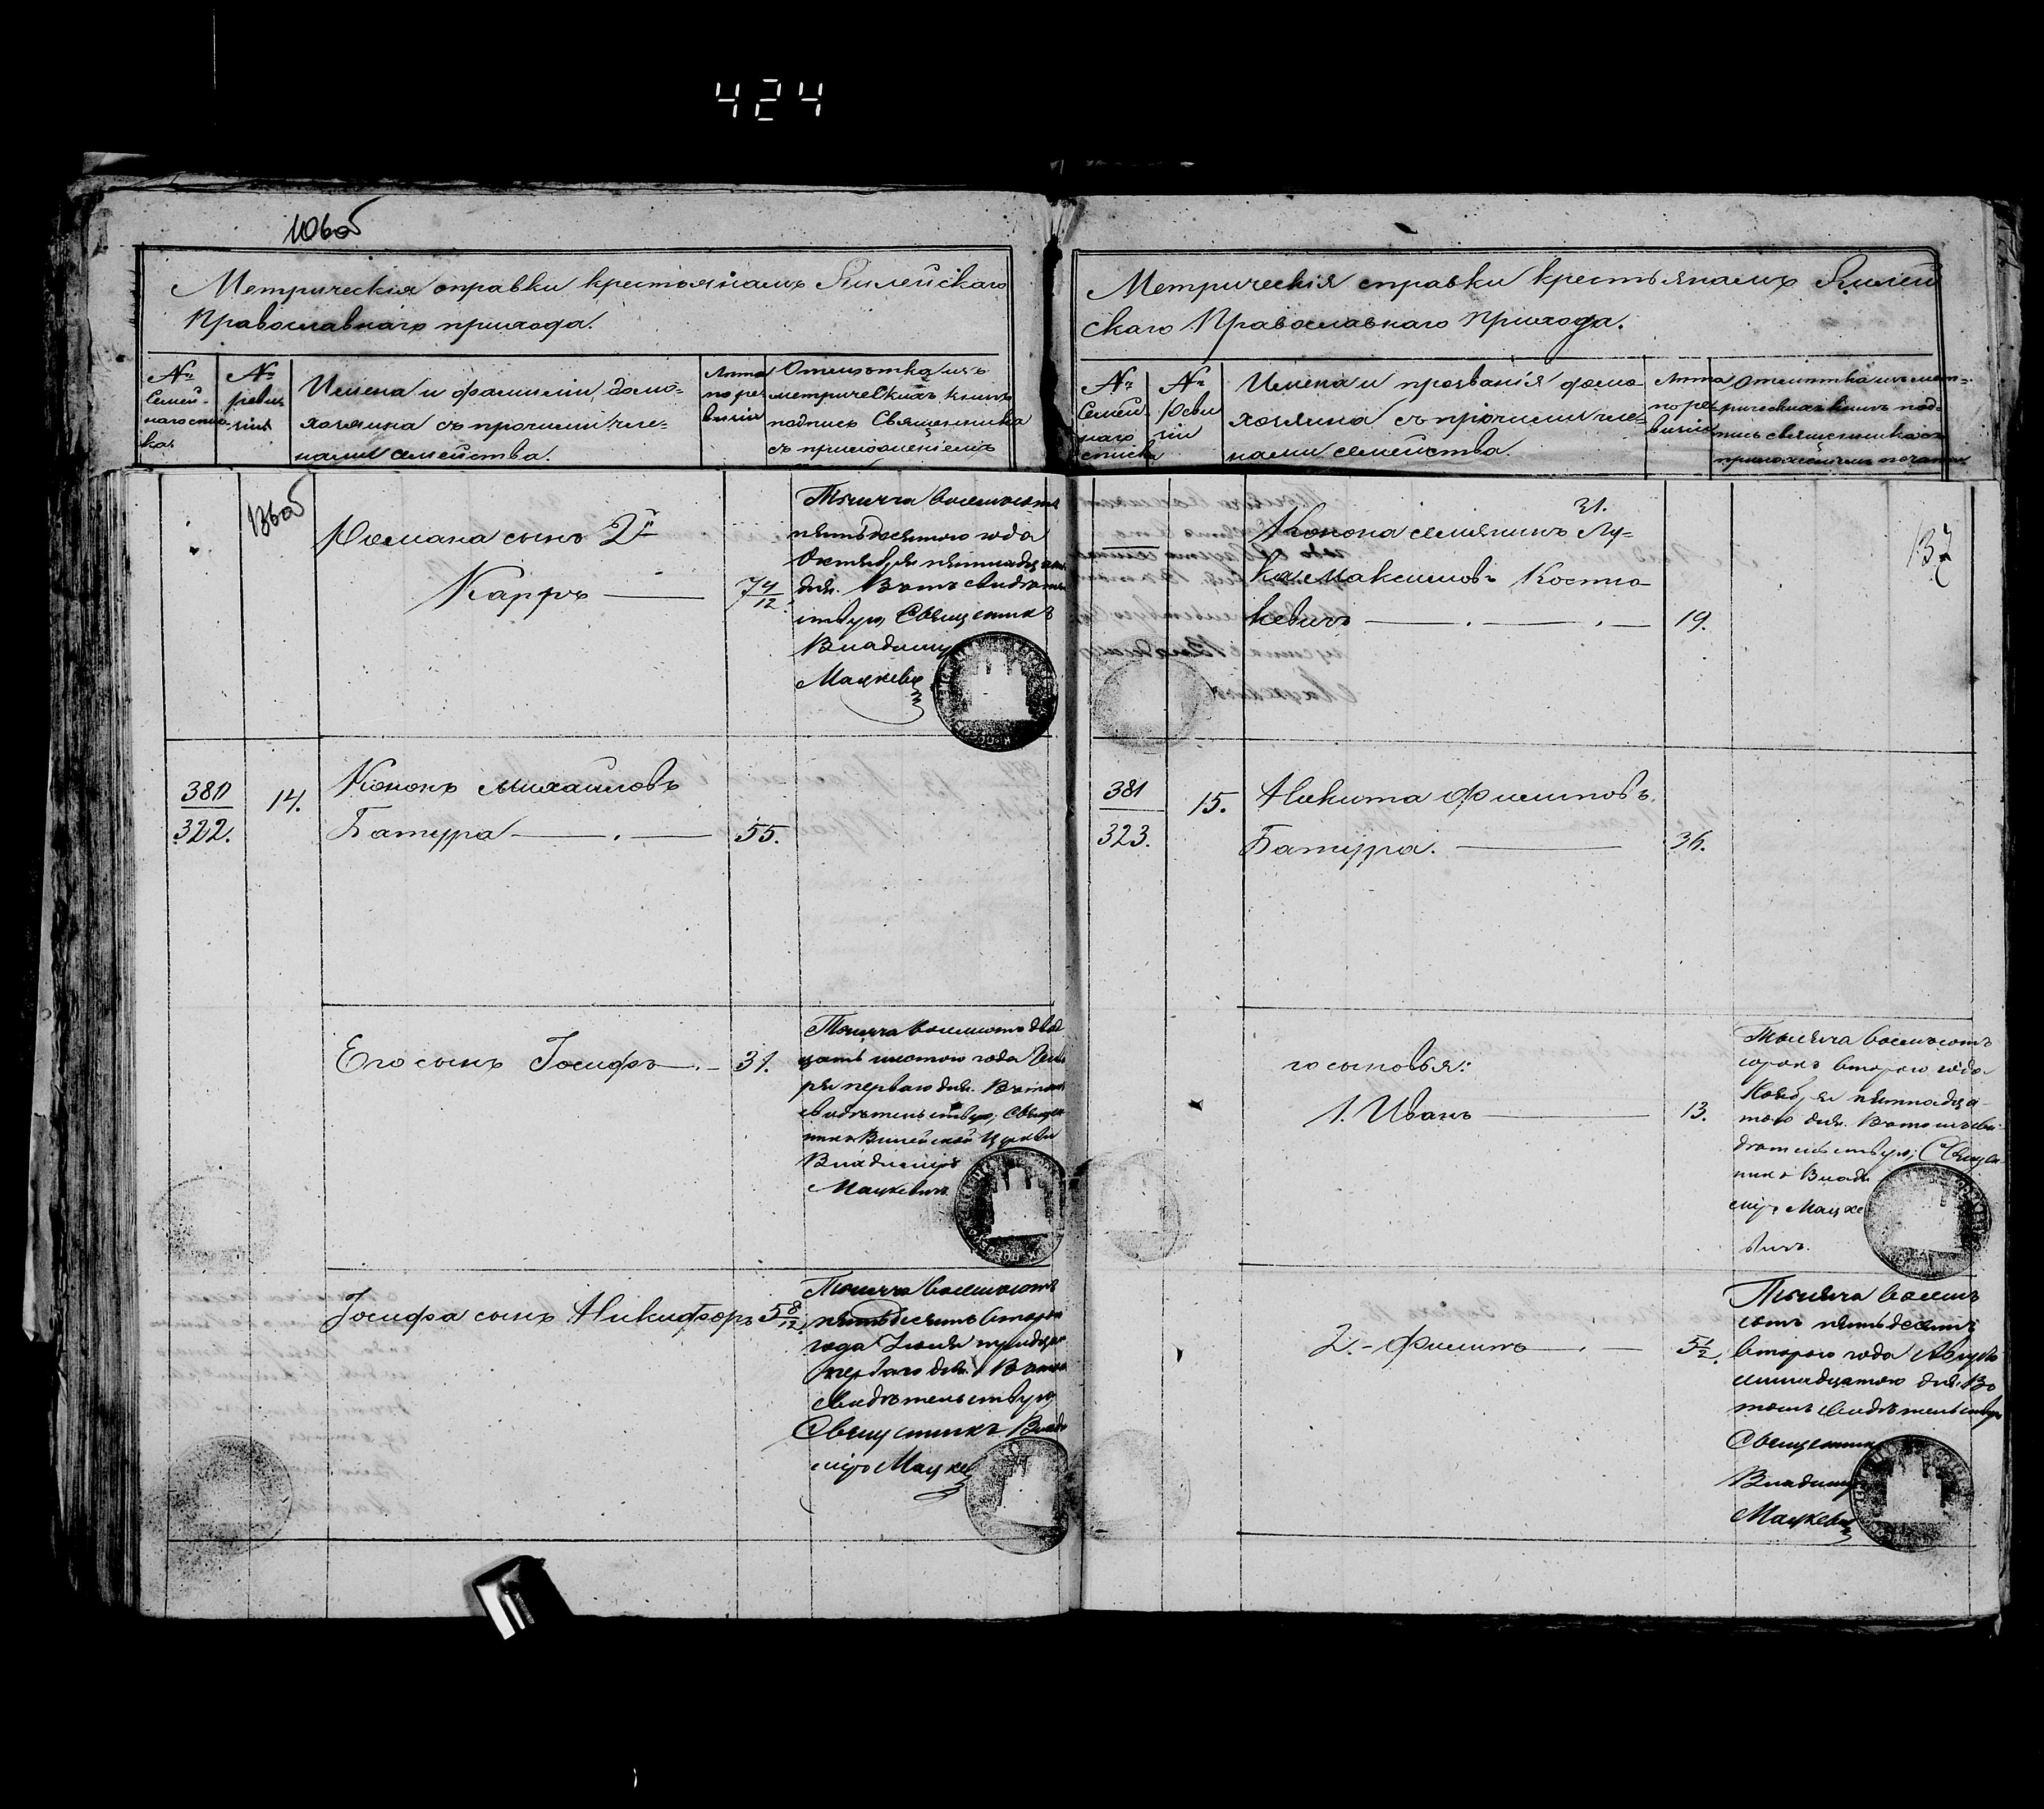 424
106об
Метрическія справки крестьянамъ Вилейскаго
Православнаго прихода.
№ Семей-наго списка
№ реви-зіи
Имена и фамиліи домо-
хозяина съ прочими чле-
нами семейства.
Лета по ре-визіи
Отметка изъ
метрическихъ книгъ
подпись Священника
съ приложеніемъ
136об
Романа сынъ 2й
Карпъ
7 4/12.
Тысяча восемьсотъ
пятьдесятого года
Октября пятнадцат.
дня. Въ томъ свидетель
ствую Священникъ
Владимир
Мацкевич
380
322.
14.
Кононъ Михайловъ
Батура
55.
Его сынъ Іосифъ
31.
Тысяча восемьсотъ двад
цать шестого года
перваго дня. Въ томъ
свидетельствую, Священ
никъ Вилейской Церкви
Владимиръ
Мацкевичъ
Іосифа сынъ Никифоръ
5 8/12.
Тысяча восемьсотъ
пятьдесятъ второго
года
дня. Въ томъ
свидетельствую
Священникъ Влади
миръ Мацкев
Метрическія справки крестьянамъ Вилей
скаго Православнаго Прихода.
№ Семей наго списка
№ Реви зіи
Имена и прозванія домо
хозяина съ прочими чле-
нами семейства.
Лета по ре-визіи
Отметка изъ мет-
рическихъ книгъ под-
пись священника съ
приложеніемъ печати
137
31.
Конона семянинъ Лу-
ка Максимовъ Костю
кевичъ
19.
381
323.
15.
Никита Филиповъ
Батура.
36.
го сыновья:
1. Иванъ
13.
Тысяча восемьсотъ
сорокъ второго года
Ноября пятнадца-
того дня. Въ томъ сви
детельствую, Священ-
никъ Влади
миръ Мацке
вичъ.
2.- Филипъ
5 1/2.
Тысяча восемь
сотъ пятьдесятъ
второго года Августа
дня. Въ
томъ свидетельствую
Священник
Владимир
Мацкевич